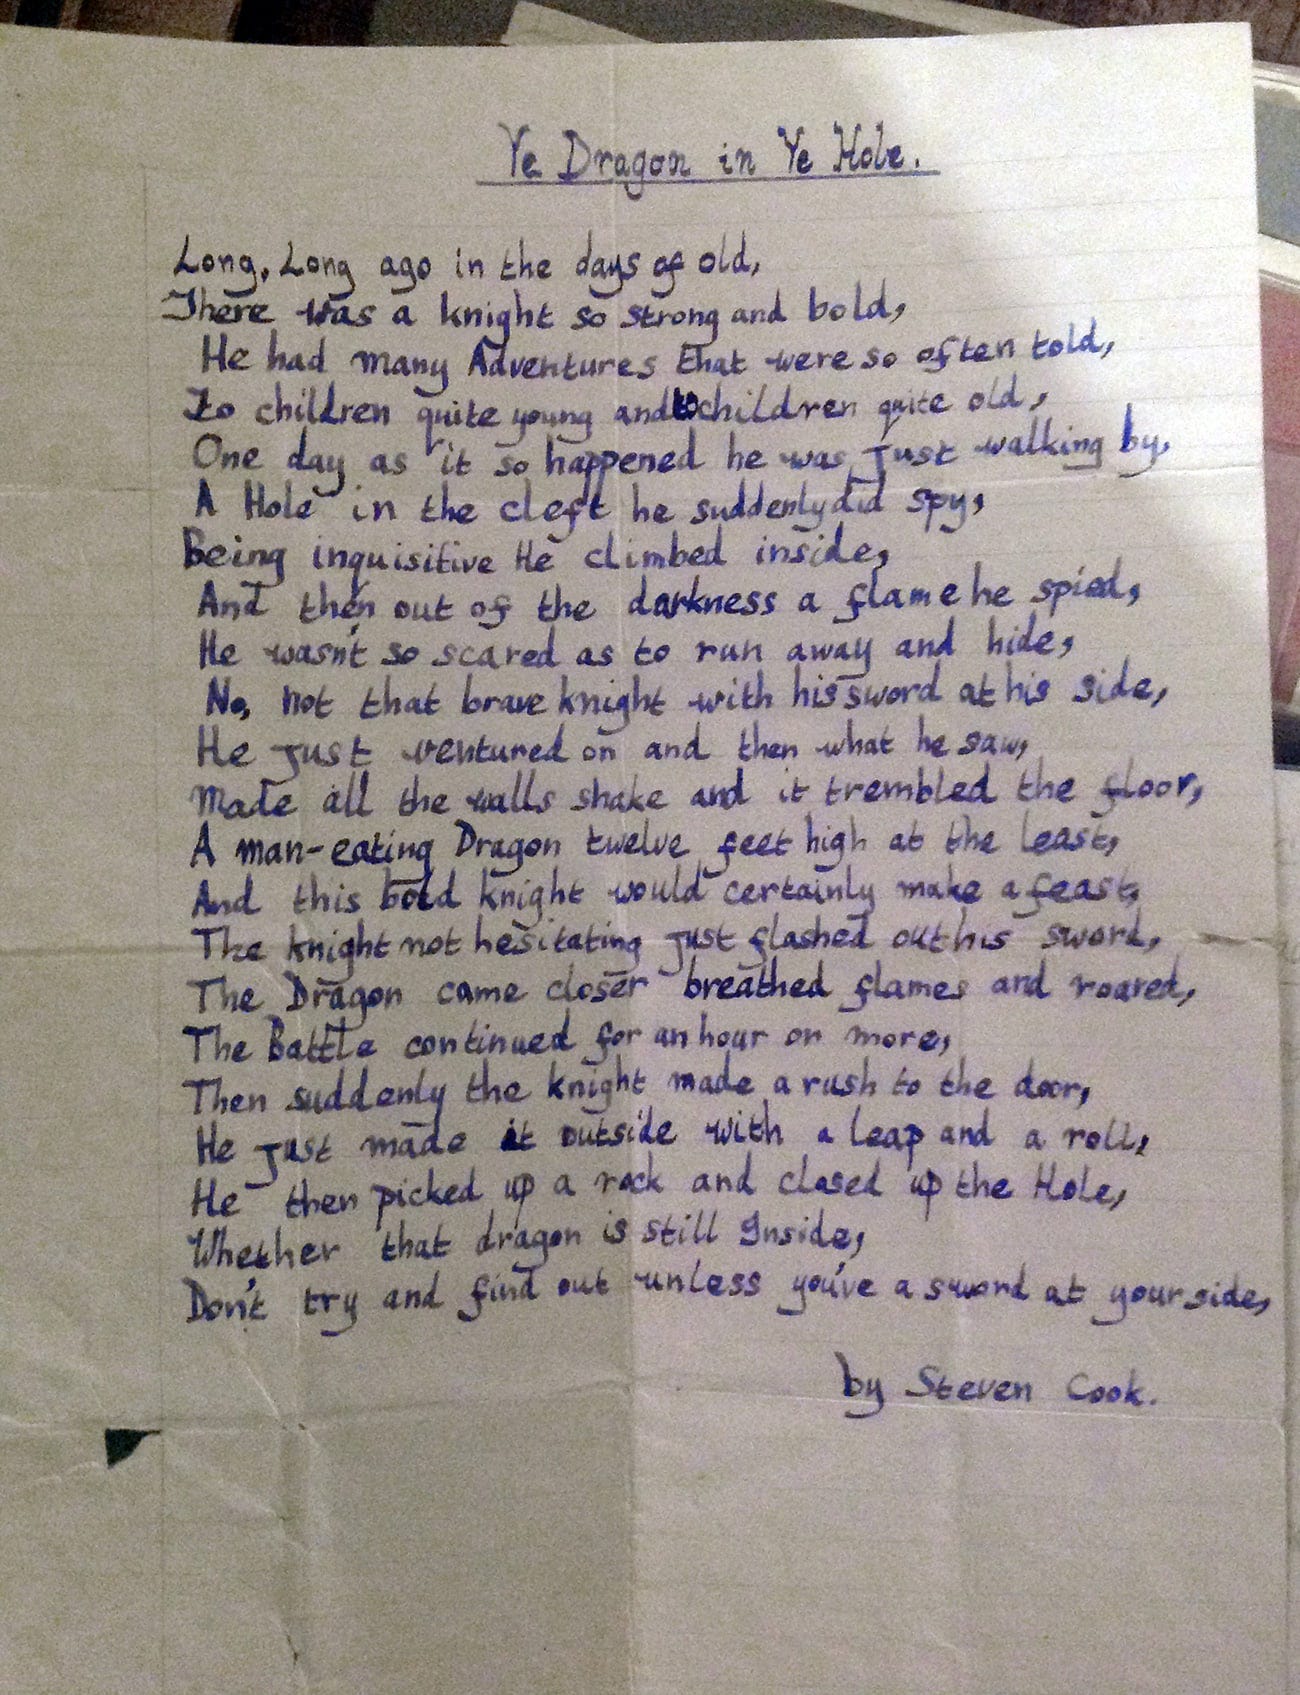 Ye Dragon in Ye Hole.
Long, Long ago in the days of old,
There was a knight so strong and bold,
He had many Adventures that were so often told,
To children quite young and to children quite old,
One day as it so happened he was just walking by,
A Hole in the cleft he suddenly did spy,
Being inquisitive He climbed inside,
And then out of the darkness a flame he spied,
He wasn't so scared as to run away and hide,
No, not that brave knight with his sword at his side,
He just ventured on and then what he saw,
Made all the walls shake and it trembled the floor,
A man-eating Dragon twelve feet high at the least,
And this bold knight would certainly make a feast,
The knight not hesitating just flashed out his sword,
The Dragon came closer breathed flames and roared,
The Battle continued for an hour or more,
Then suddenly the knight made a rush to the door,
He just made it outside with a leap and a roll,
He then picked up a rock and closed up the Hole,
Whether that dragon is still Inside,
Don't try and find out unless you've a sword at your side,
by Steven Cook.